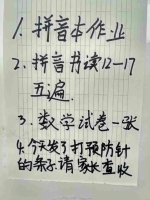 1. 拼音本作业
2. 拼音书读12-17
五遍.
3. 数学试卷一张
4. 今天发了打预防针
的条子.请家长查收